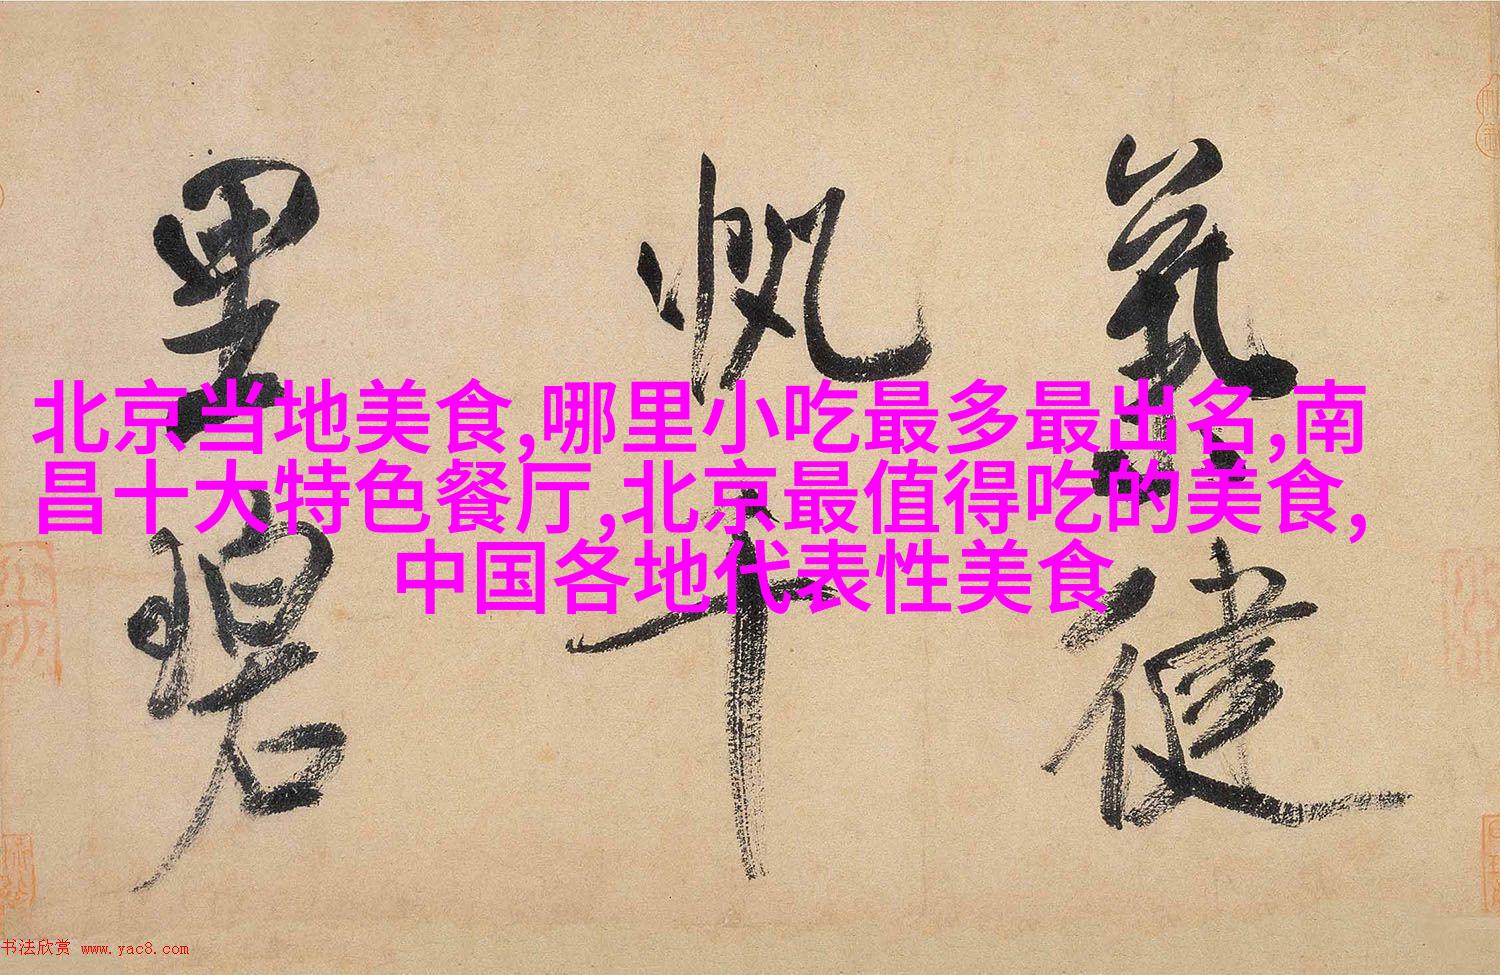 北京当地美食,哪里小吃最多最出名,南
昌十大特色餐厅,北京最值得吃的美食,
中国各地代表性美食
氣健
帆千
里碧
书法欣赏 www.yac8.com